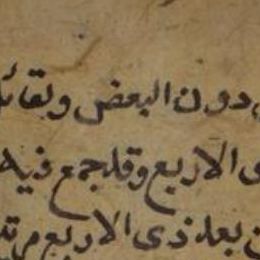 دون البعض وبقا
الاربع وقد جمع فيه
بعد ذى الاربع مرتبة